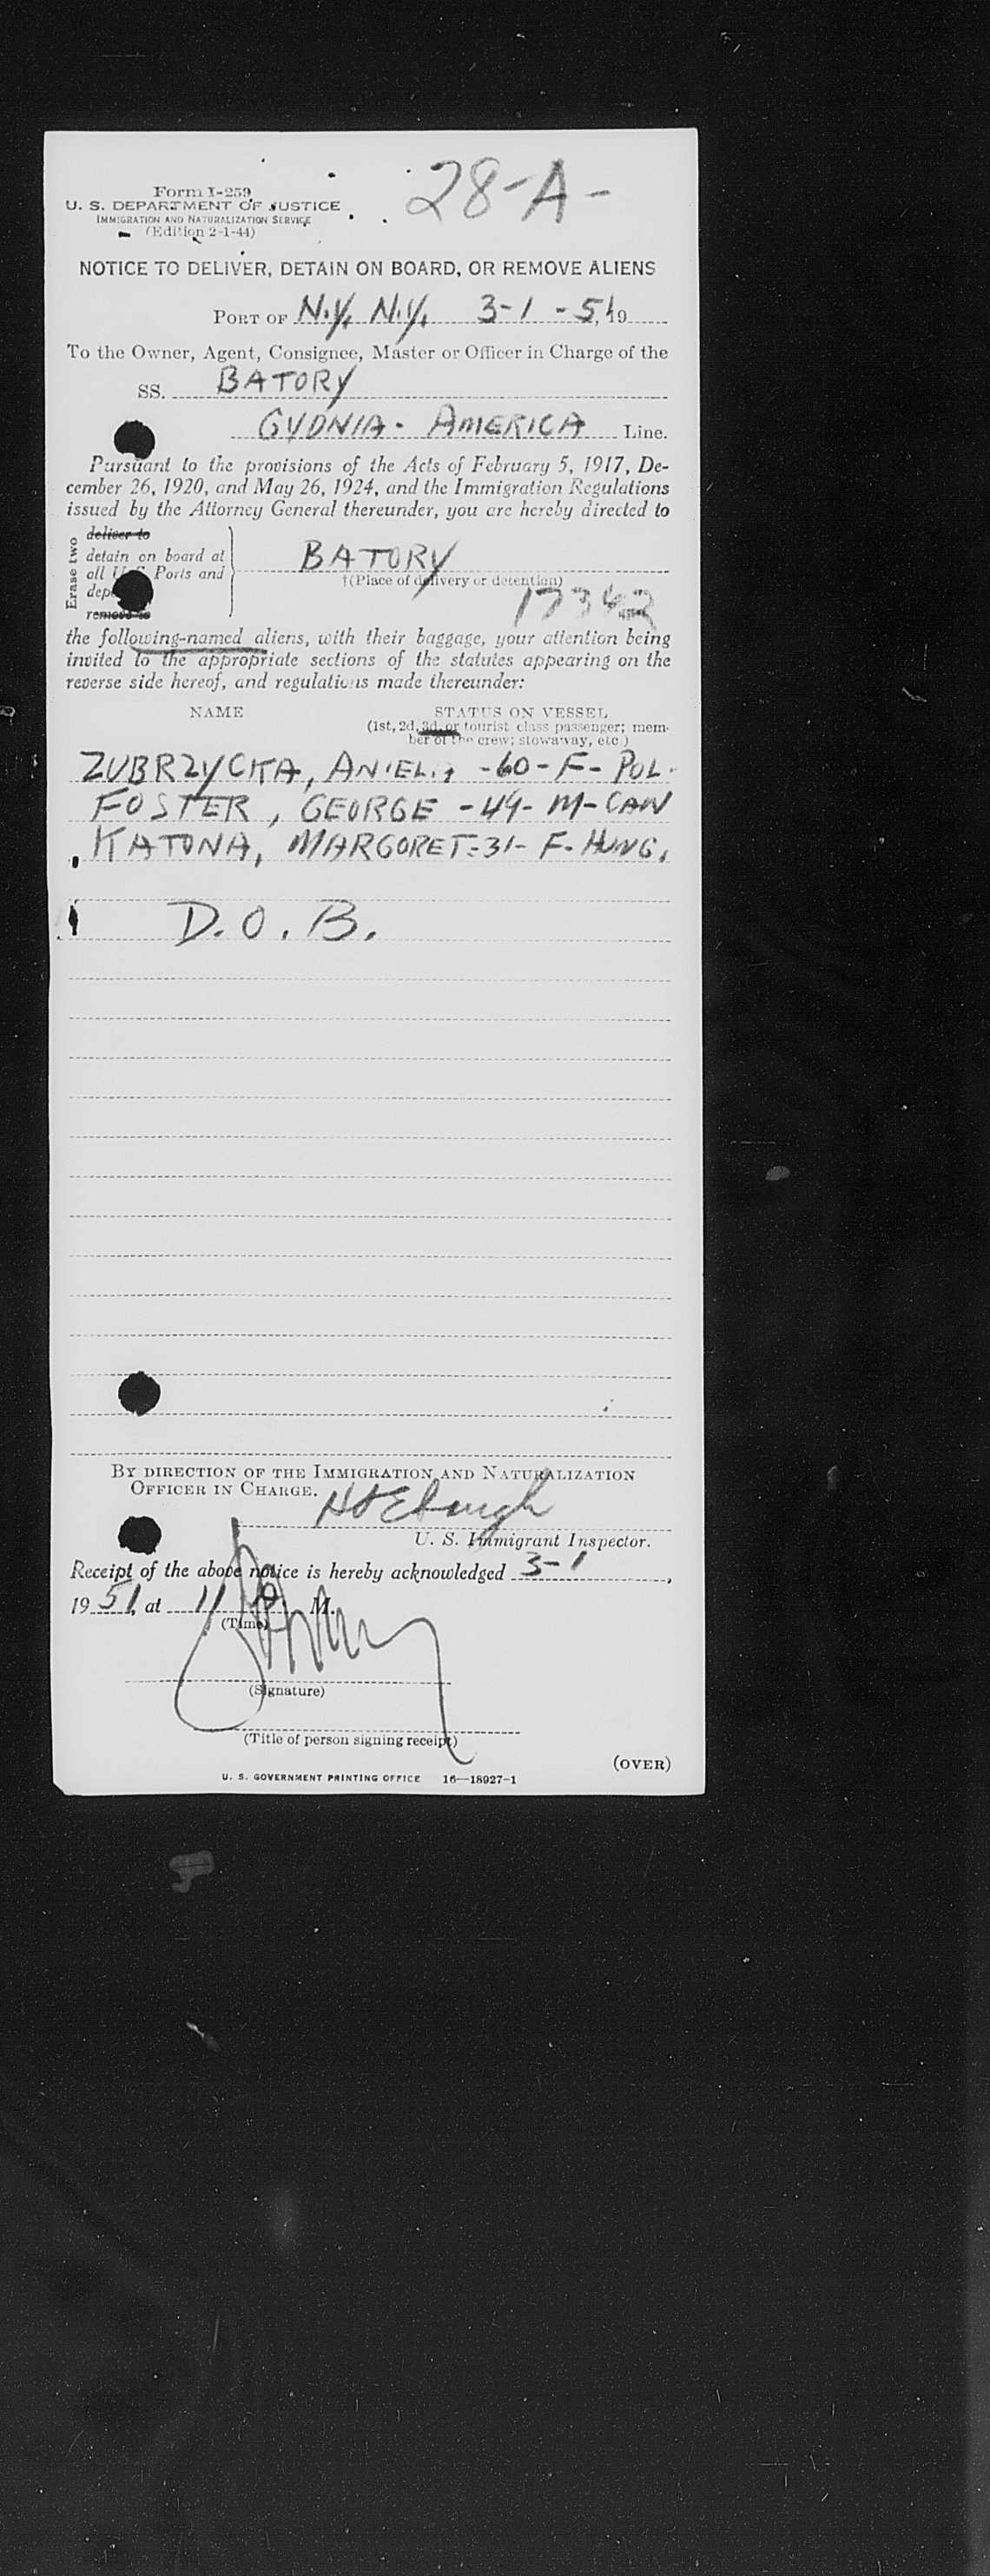 Form I-259
28-A-
U. S. DEPARTMENT OF JUSTICE
IMMIGRATION AND NATURALIZATION SERVICE
(Edition 2-1-44)
NOTICE TO DELIVER, DETAIN ON BOARD, OR REMOVE ALIENS
PORT OF N.Y. N.Y. 3-1-51, 19
To the Owner, Agent, Consignee, Master or Officer in Charge of the
SS. BATORY
GYDNIA- AMERICA Line.
Pursuant to the provisions of the Acts of February 5, 1917, De-
cember 26, 1920, and May 26, 1924, and the Immigration Regulations
issued by the Attorney General thereunder, you are hereby directed to
Erase two
deliver to
detain on board at
all U. S. Ports and
BATORY
†(Place of delivery or detention)
remove to
17342
the following-named aliens, with their baggage, your attention being
invited to the appropriate sections of the statutes appearing on the
reverse side hereof, and regulations made thereunder:
NAME STATUS ON VESSEL
(1st, 2d, 3d, or tourist class passenger; mem-
ber of the crew; stowaway, etc.)
ZUBRZYCKA, ANIELA -60-F- POL.
FOSTER, GEORGE -49- M-CAN
KATONA, MARGORET-31- F- HUNG.
D.O.B.
BY DIRECTION OF THE IMMIGRATION AND NATURALIZATION
OFFICER IN CHARGE.
U. S. Immigrant Inspector.
Receipt of the above notice is hereby acknowledged 3-1,
1951, at 11 M.
(Time)
(Signature)
(Title of person signing receipt)
(OVER)
U. S. GOVERNMENT PRINTING OFFICE 16—18927-1